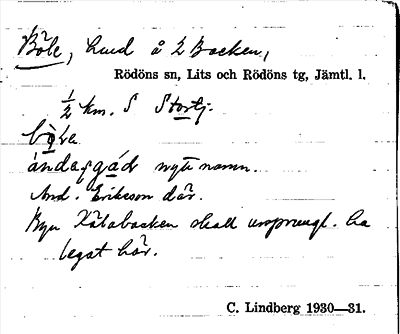 Böle, hmd å 2 Backen,
Rödöns sn, Lits och Rödöns tg, Jämtl. l.
1/2 km. S Stortj.
nytt namn.
And. Eriksson där.
Byn Kälabacken skall urspringl. ha
legat här.
C. Lindberg 1930—31.